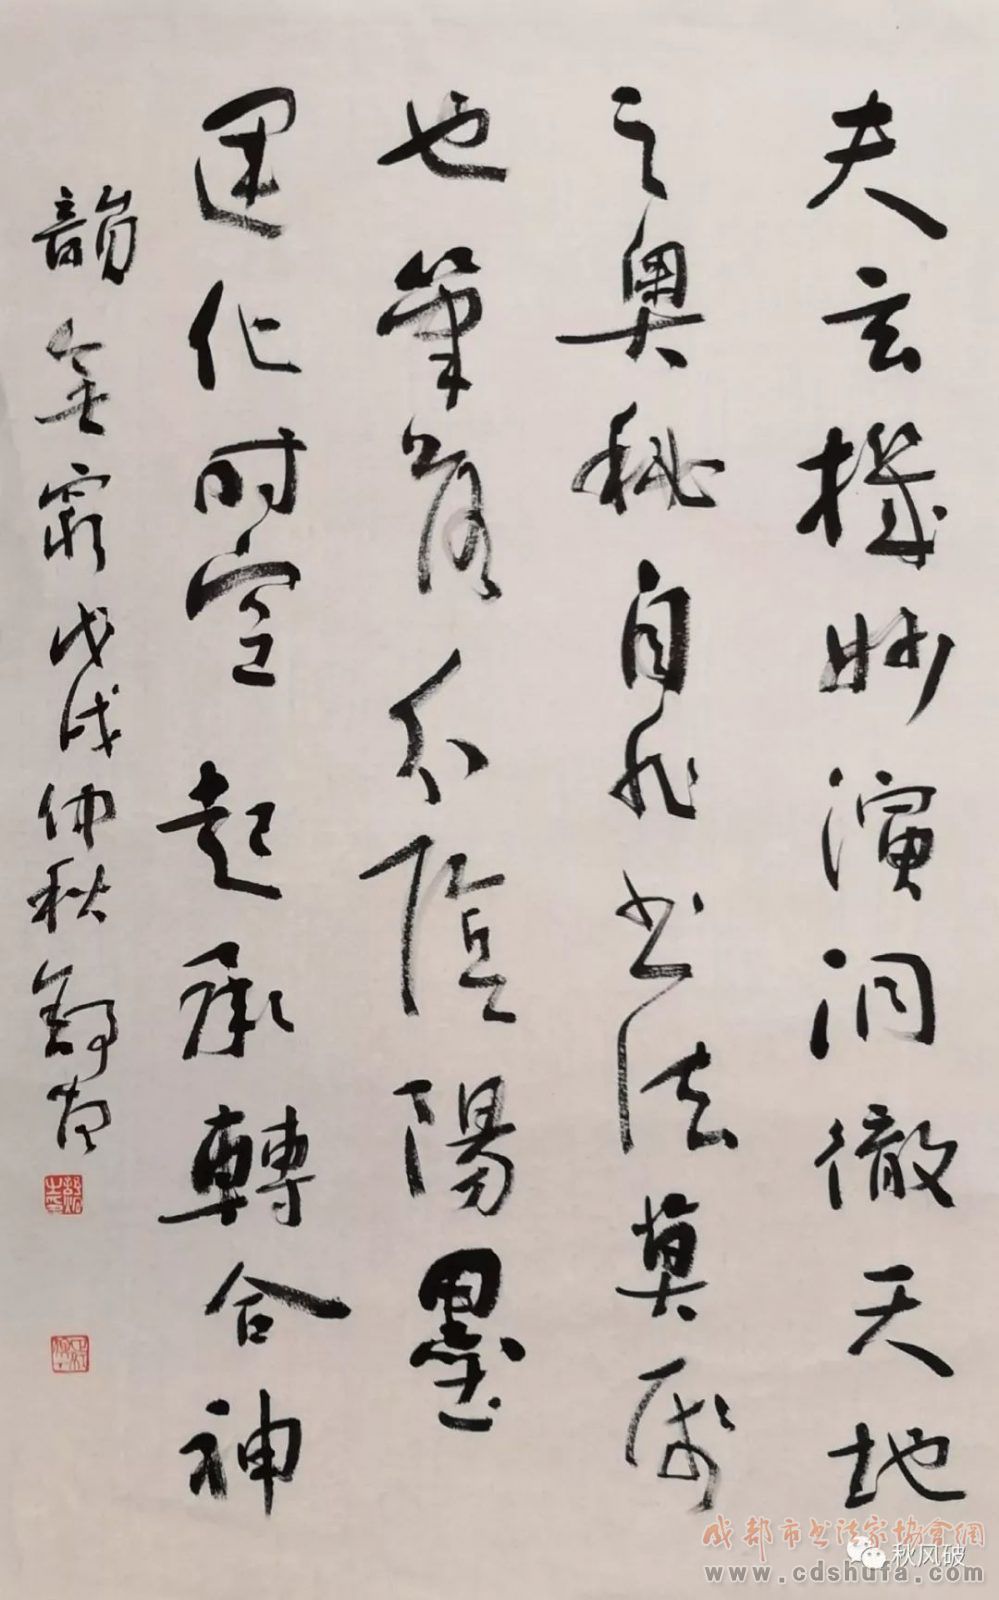 夫玄機妙演洞徹天地
之奥秘自非書法莫屬
也筆有不陰陽墨
運化时空起承轉合神
韻無窮戊戌仲秋舒
成都市书法家協會網
秋风破
www.cdshufa.com